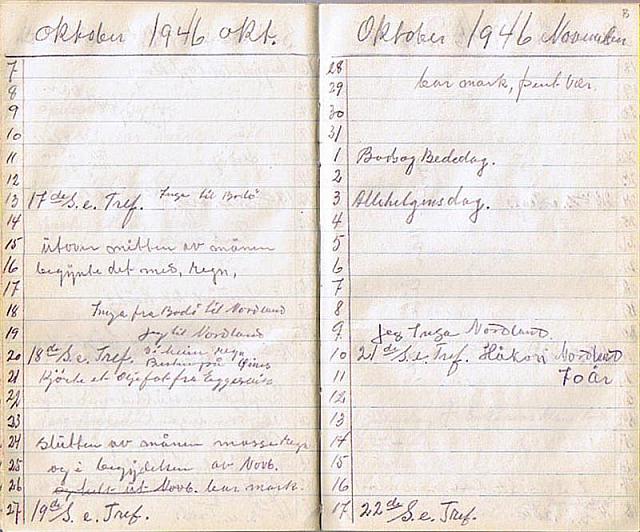 Oktober 1946 okt.
7
8
9
10
11
12
13 17de S. e. Tref. Inga til Bodö
14
15 utover mitten av månen
16 begynte det med, regn,
17
18 Inga fra Bodö til Nordland
19 jeg til Nordland
20 18de S. e. Tref. Vi heim regn
på
21 Kjörte et Oljefat fra
22
23
24 slutten av månen masse regn
25 og i begyndelsen av Novb.
26 Novb. bar mark.
27 19de S. e. Tref.
Oktober 1946 November
28
29 bar mark, pent vær.
30
31
1 Bods og Bededag.
2
3 Allehelgensdag.
4
5
6
7
8
9 jeg Inga Nordland.
10 21de S. e. Tref. Håkon Nordland
11 70 år
12
13
14
15
16
17 22de S. e. Tref.